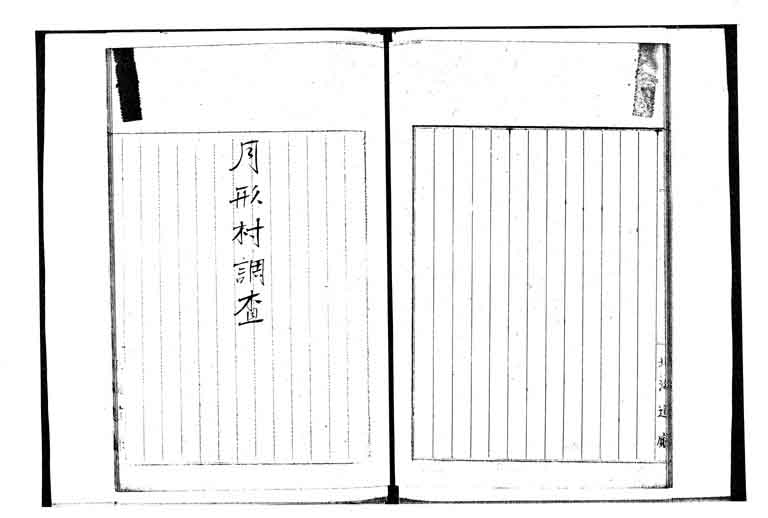 北海道廳
月形村調査